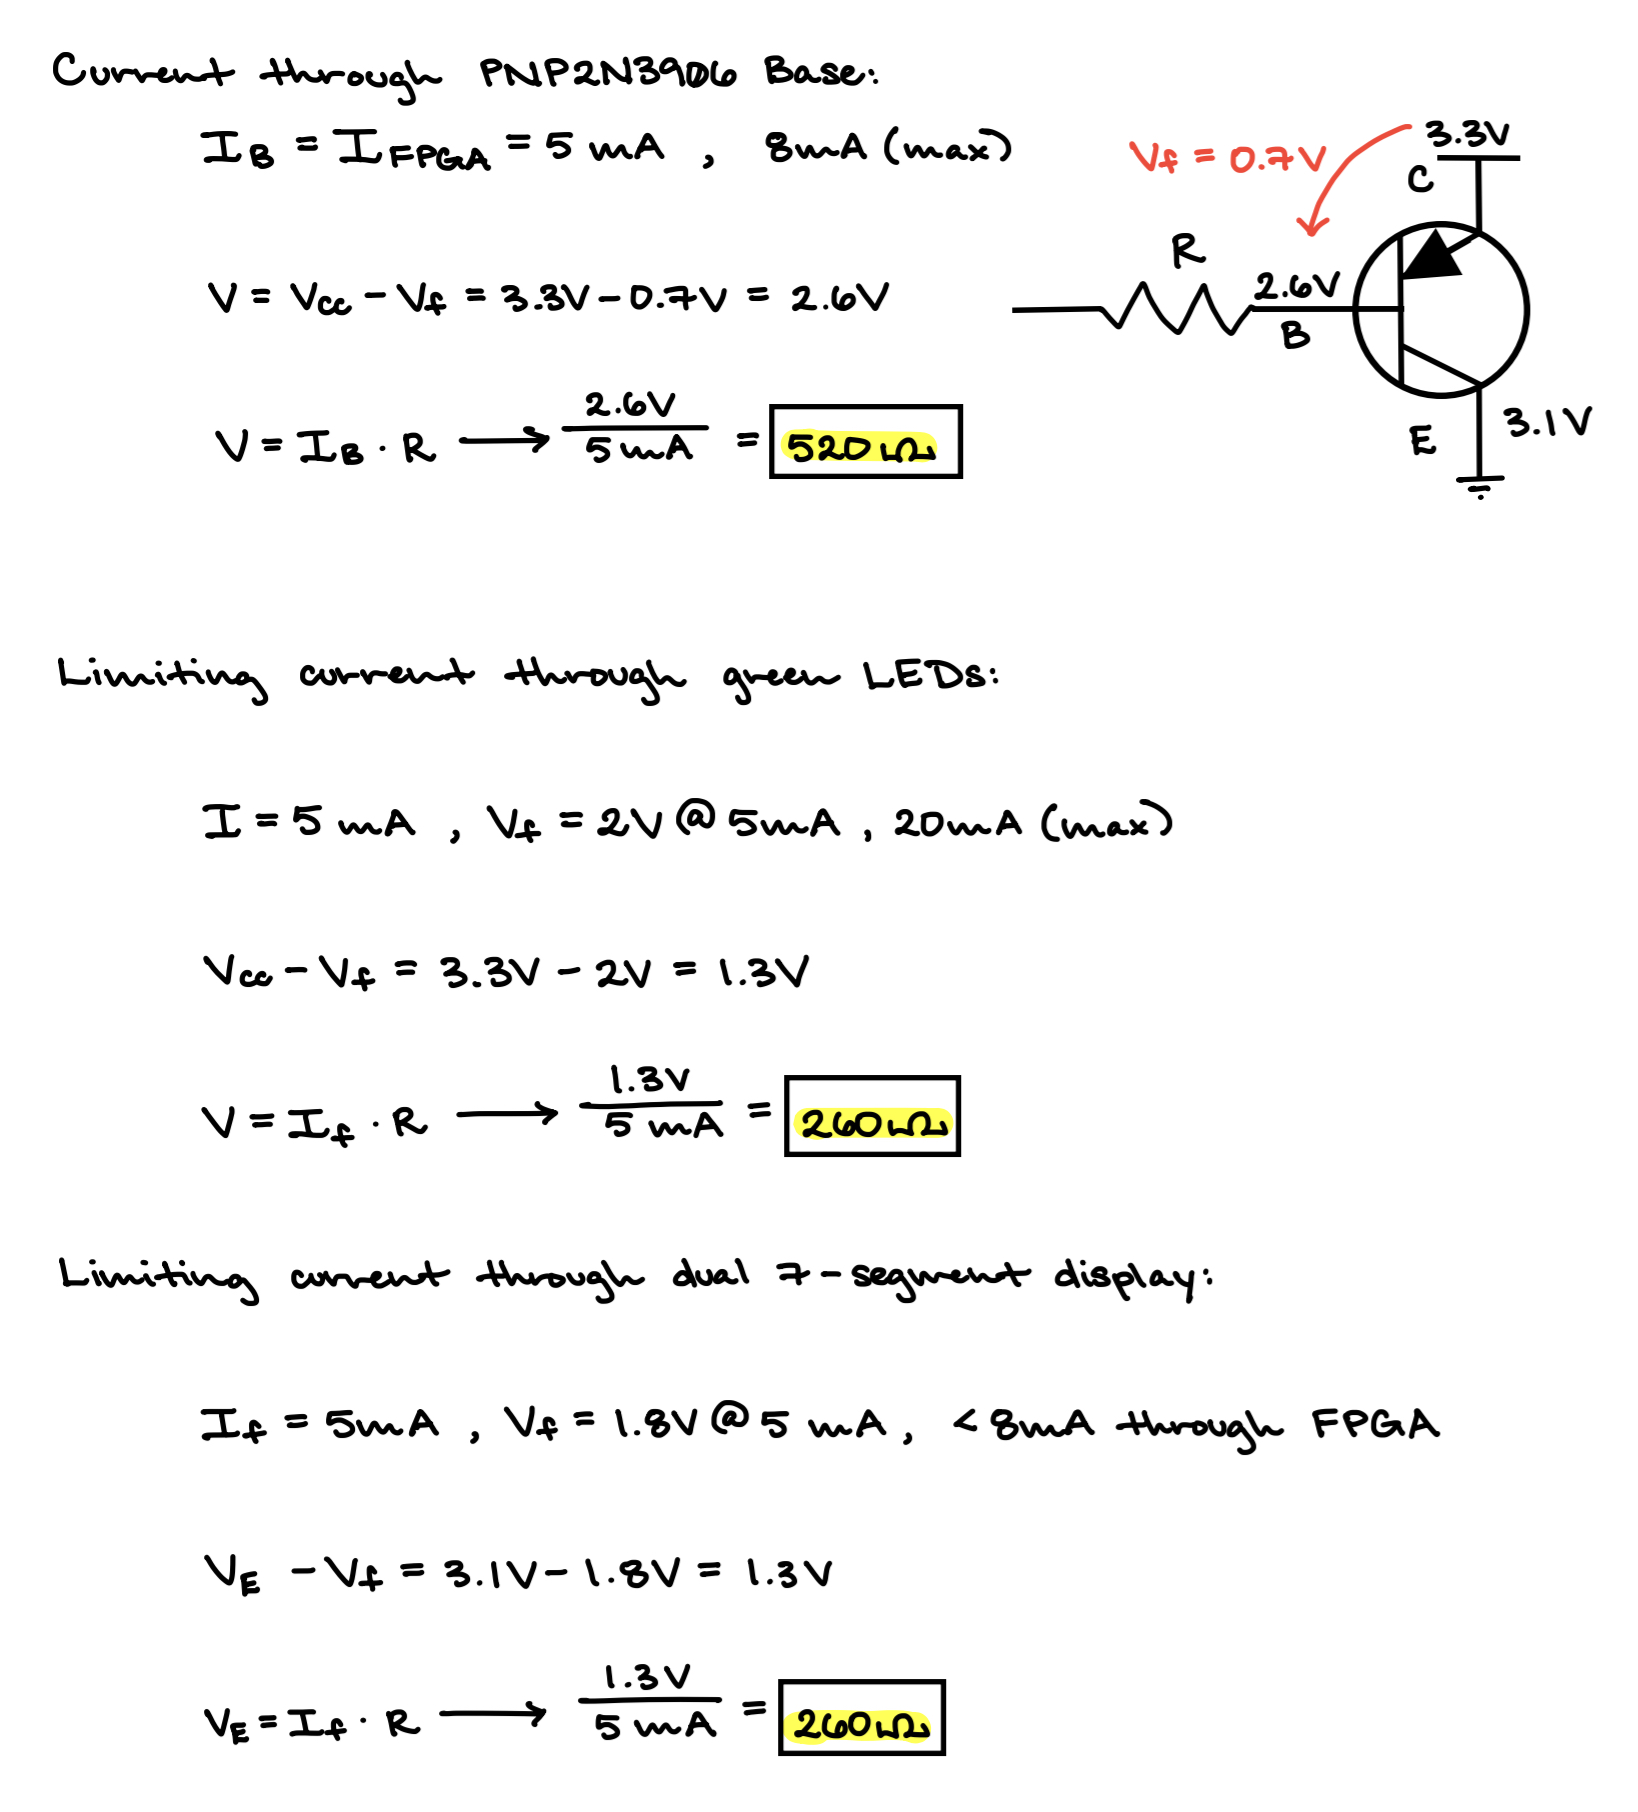 Current through PNP2N3906 Base:
I_B = I_FPGA = 5 mA , 8mA (max)
V_f = 0.7V
3.3V
C
R
2.6V
B
V = V_cc - V_f = 3.3V - 0.7V = 2.6V
3.1V
E
V = I_B · R → 2.6V / 5 mA = 520 Ω
Limiting current through green LEDs:
I = 5 mA , V_f = 2V @ 5mA , 20mA (max)
V_cc - V_f = 3.3V - 2V = 1.3V
V = I_f · R → 1.3V / 5 mA = 260 Ω
Limiting current through dual 7-segment display:
I_f = 5mA , V_f = 1.8V @ 5 mA , < 8mA through FPGA
V_E - V_f = 3.1V - 1.8V = 1.3V
V_E = I_f · R → 1.3V / 5 mA = 260 Ω